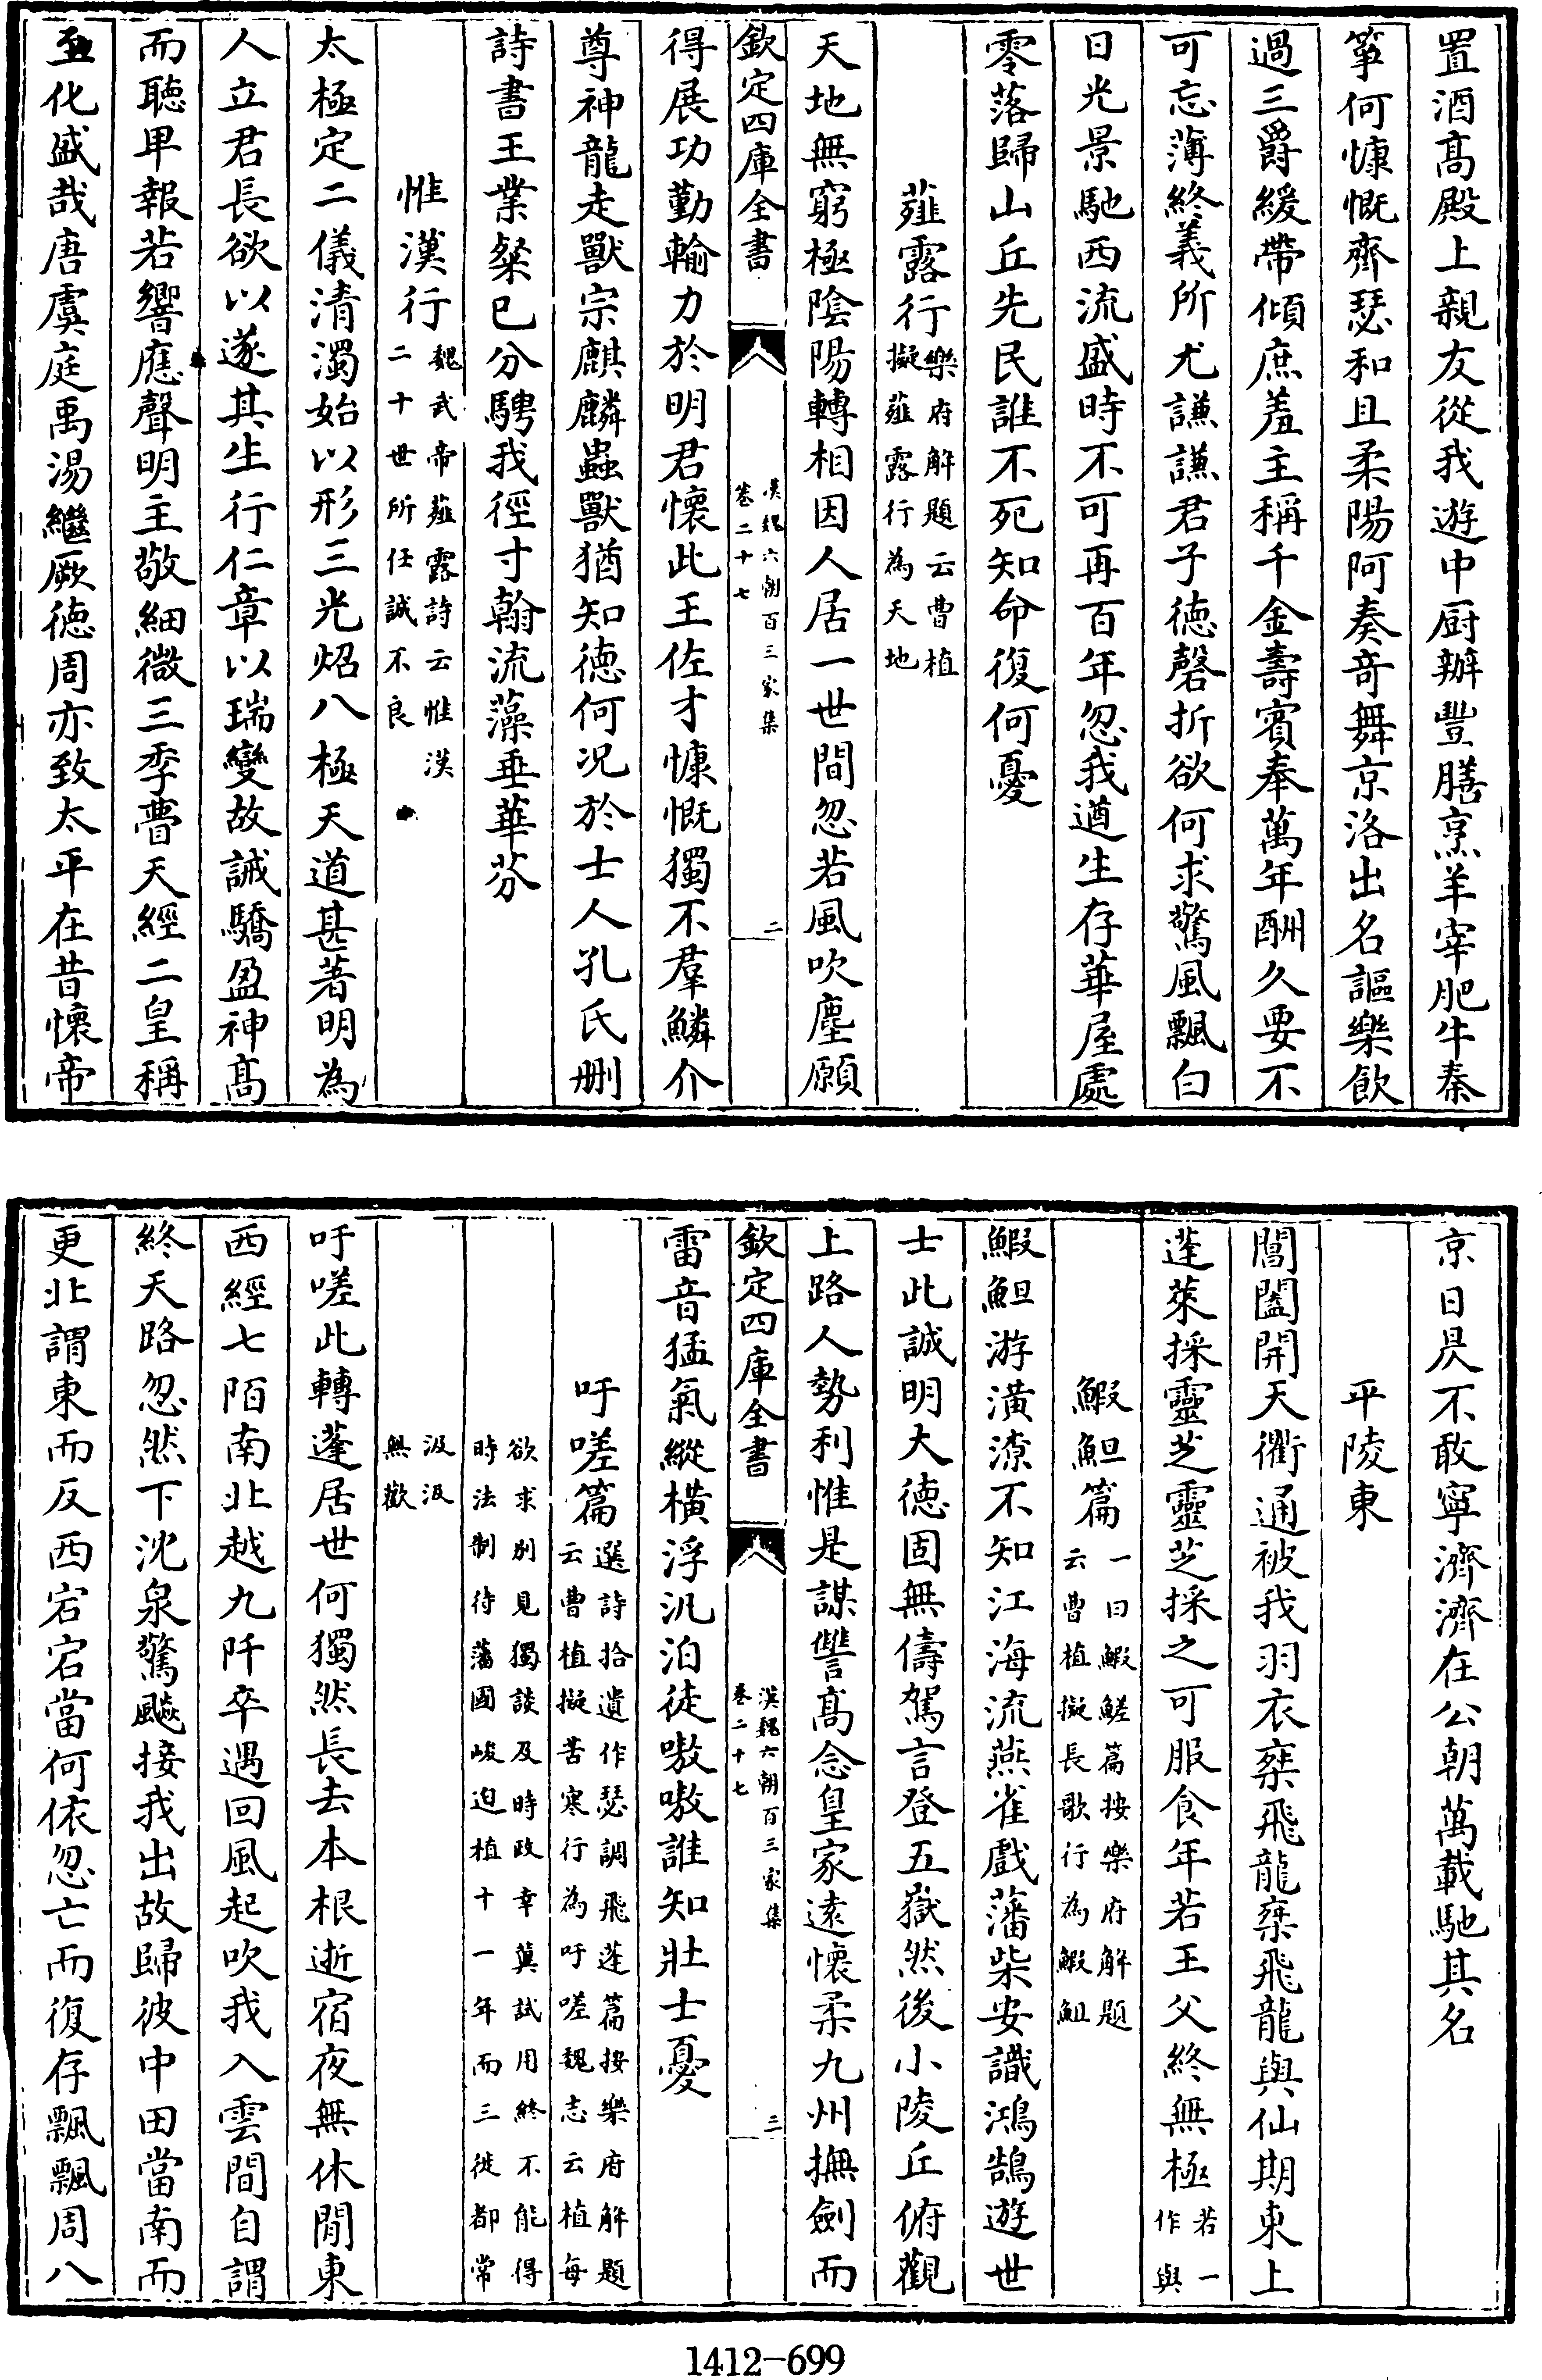 置酒髙殿上親友從我遊中厨辦豐膳烹羊宰肥牛秦
筝何慷慨齊瑟和且柔陽阿奏竒舞京洛出名謳樂飲
過三爵緩帶傾庶羞主稱千金壽賓奉萬年酬久要不
可忘薄終義所尤謙謙君子徳磬折欲何求驚風飄白
日光景馳西流盛時不可再百年忽我遒生存華屋處
零落歸山丘先民誰不死知命復何憂
薤露行樂府解題云曹植擬薤露行為天地
天地無窮極陰陽轉相因人居一世間忽若風吹塵願
欽定四庫全書
漢魏六朝百三家集
卷二十七
二
得展功勤輸力於明君懷此王佐才慷慨獨不羣鱗介
尊神龍走獸宗麒麟蟲獸猶知徳何况於士人孔氏刪
詩書王業粲已分騁我徑寸翰流藻垂華芬
惟漢行魏武帝薤露詩云惟漢二十世所任誠不良
太極定二儀清濁始以形三光炤八極天道甚著明為
人立君長欲以遂其生行仁章以瑞變故誡驕盈神髙
而聽卑報若響應聲明主敬細微三季瞢天經二皇稱
至化盛哉唐虞庭禹湯繼厥徳周亦致太平在昔懷帝
京日昃不敢寧濟濟在公朝萬載馳其名
平陵東
閶闔開天衢通被我羽衣乗飛龍乗飛龍與仙期東上
蓬萊採靈芝靈芝採之可服食年若王父終無極若一作與
鰕䱇篇一曰鰕䱇篇按樂府解題云曹植擬長歌行為鰕䱇
鰕䱇游潢潦不知江海流燕雀戲藩柴安識鴻鵠遊世
士此誠明大徳固無儔駕言登五嶽然後小陵丘俯觀
上路人勢利惟是謀讐髙念皇家逺懷柔九州撫劍而
欽定四庫全書
漢魏六朝百三家集
卷二十七
三
雷音猛氣縱橫浮汎泊徒嗷嗷誰知壯士憂
吁嗟篇選詩拾遺作瑟調飛蓬篇按樂府解題云曹植擬苦寒行為吁嗟魏志云植每
欲求别見獨談及時政幸冀試用終不能得時法制待藩國峻迫植十一年而三徙都常
汲汲無歡
吁嗟此轉蓬居世何獨然長去本根逝宿夜無休閒東
西經七陌南北越九阡卒遇回風起吹我入雲間自謂
終天路忽然下沈泉驚飈接我出故歸彼中田當南而
更北謂東而反西宕宕當何依忽亡而復存飄飄周八
1412-699